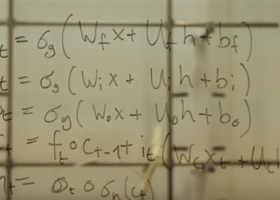 t = σg(Wfx + Ufh + bf)
t = σg(Wix + Uih + bi)
t = σg(Wox + Uoh + bo)
t = ft ∘ ct-1 + it (Wcx + U
t = ∘ σh(ct)